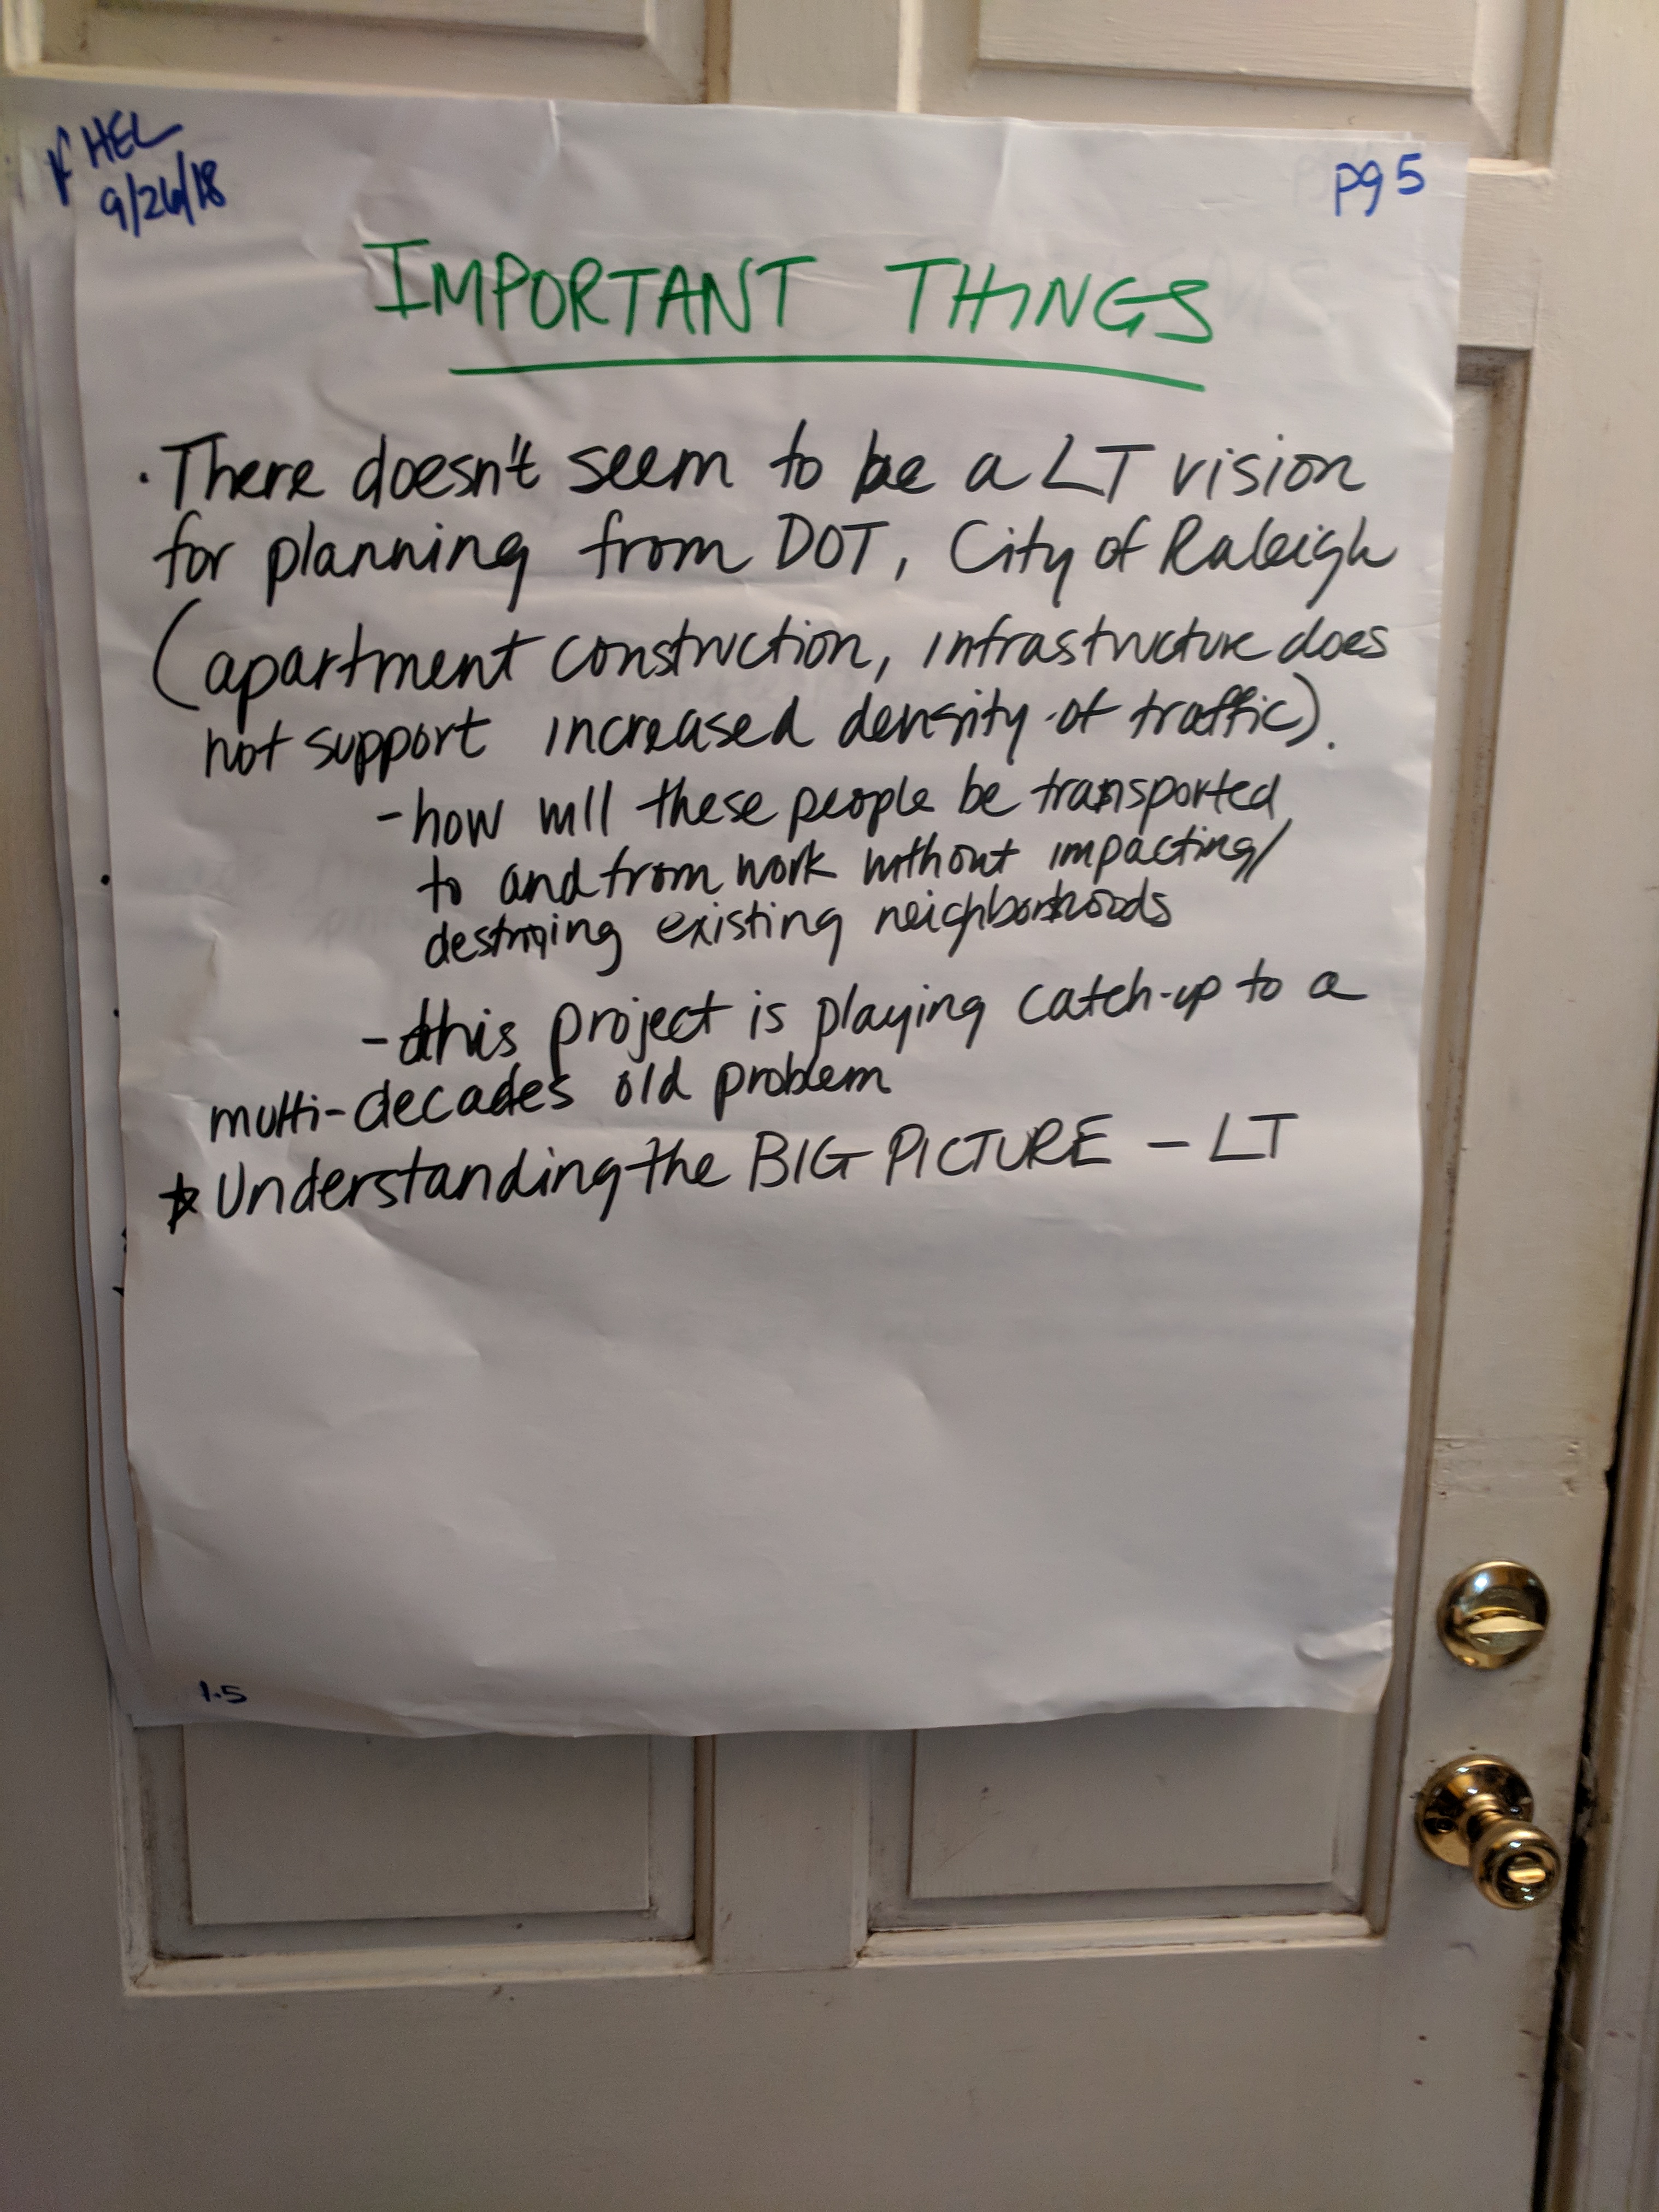 HEL
9/26/18
pg 5
IMPORTANT THINGS
· There doesn't seem to be a LT vision
for planning from DOT, City of Raleigh
(apartment construction, infrastructure does
not support increased density of traffic).
- how will these people be transported
to and from work without impacting/
destroying existing neighborhoods
- this project is playing catch-up to a
multi-decades old problem
☆ Understanding the BIG PICTURE - LT
1.5